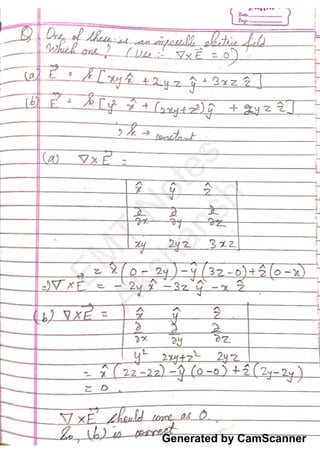 Date
Page
Q. One of these is an impossible electric field
Which one? (Use :- ∇×E⃗ = 0)
(a) E⃗ = k[xy x̂ + 2yz ŷ + 3xz ẑ]
(b) E⃗ = k[y² x̂ + (2xy+z²) ŷ + 2yz ẑ]
; k → constant
(a) ∇×E⃗ =
x̂ ŷ ẑ
∂/∂x ∂/∂y ∂/∂z
xy 2yz 3xz
= x̂(0-2y) - ŷ(3z-0) + ẑ(0-x)
⇒ ∇×E⃗ = -2y x̂ - 3z ŷ - x ẑ
(b) ∇×E⃗ = x̂ ŷ ẑ
∂/∂x ∂/∂y ∂/∂z
y² 2xy+z² 2yz
= x̂(2z-2z) - ŷ(0-0) + ẑ(2y-2y)
= 0
∇×E⃗ should come as 0.
So, (b) is correct
EMT Notes
Generated by CamScanner